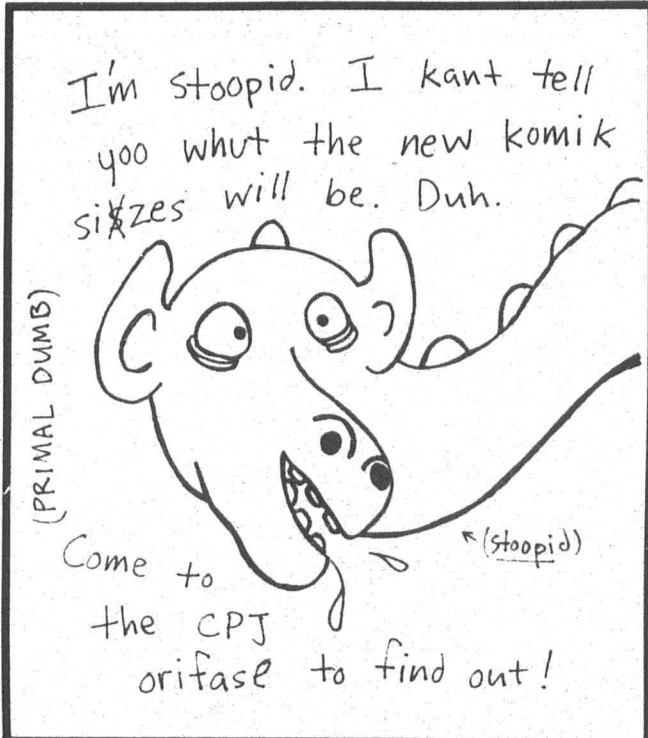 I'm stoopid. I kant tell
yoo whut the new komik
sizes will be. Duh.
(PRIMAL DUMB)
(stoopid)
Come to
the CPJ
orifase to find out!